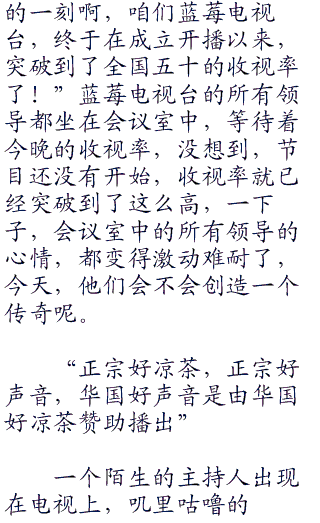 的一刻啊，咱们蓝莓电视
台，终于在成立开播以来，
突破到了全国五十的收视率
了！”蓝莓电视台的所有领
导都坐在会议室中，等待着
今晚的收视率，没想到，节
目还没有开始，收视率就已
经突破到了这么高，一下
子，会议室中的所有领导的
心情，都变得激动难耐了，
今天，他们会不会创造一个
传奇呢。
“正宗好凉茶，正宗好
声音，华国好声音是由华国
好凉茶赞助播出”
一个陌生的主持人出现
在电视上，叽里咕噜的